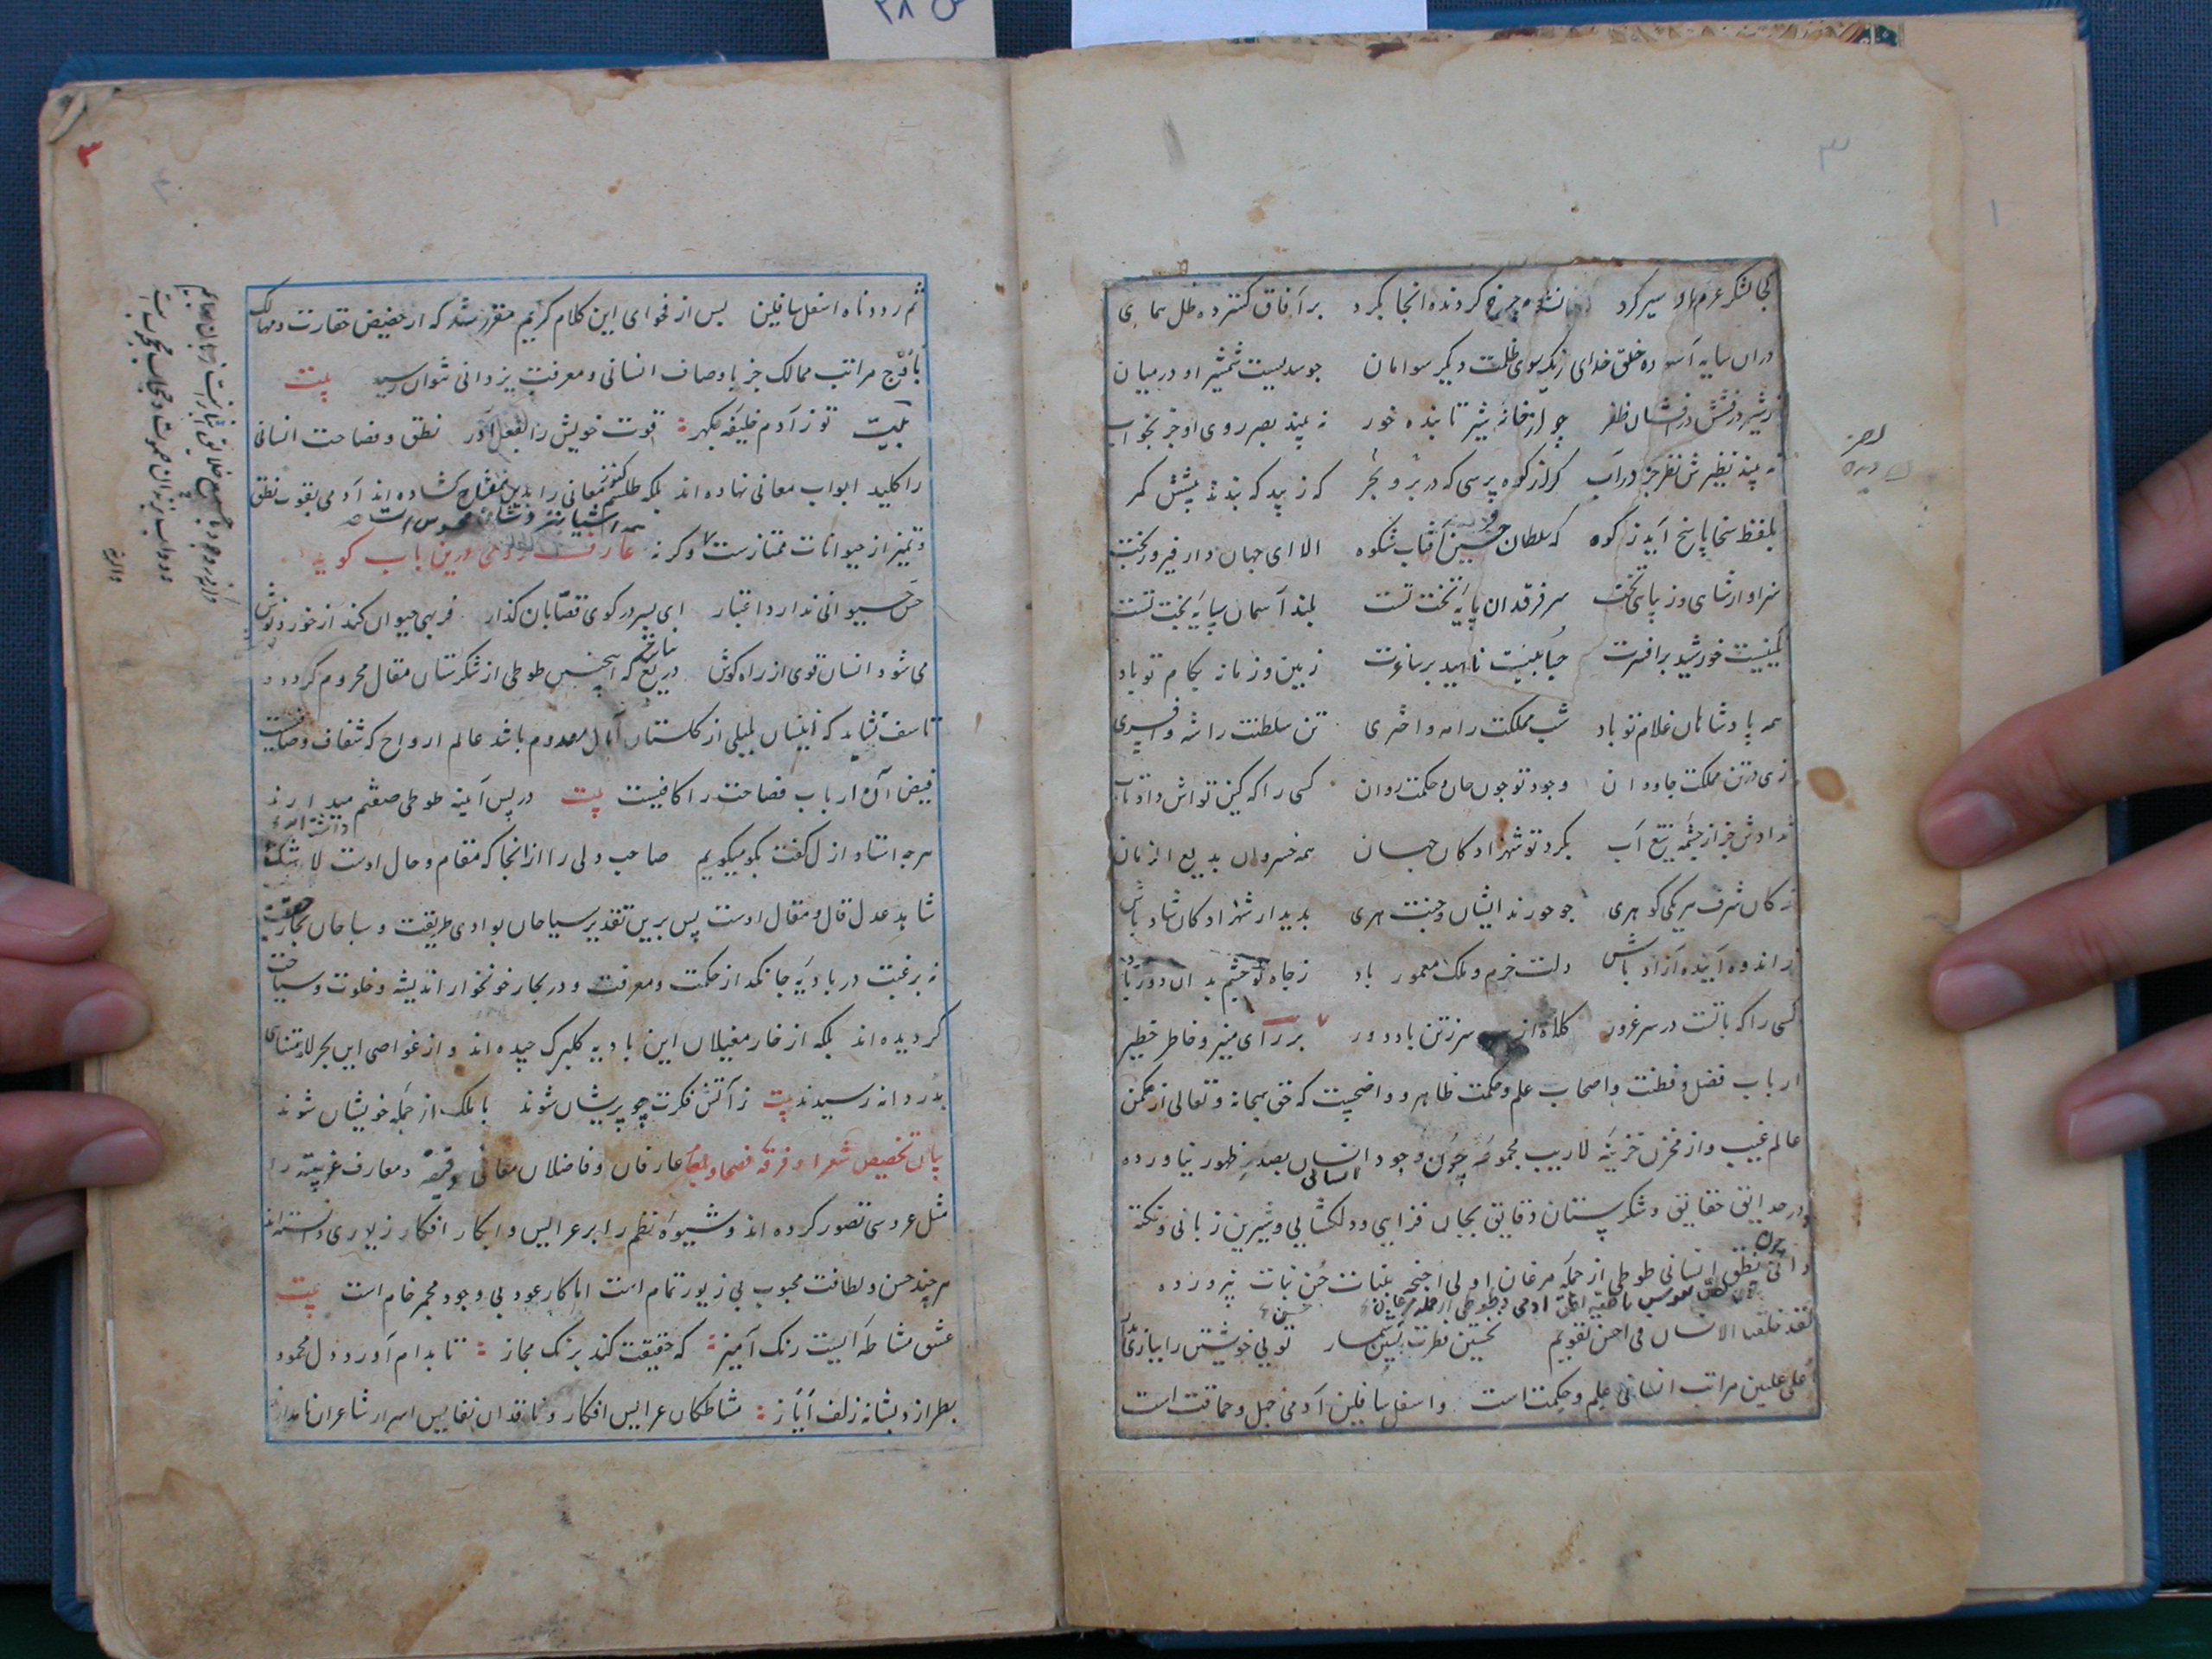 کجا لشکر عزم او سیر کرد چرخ گردنده انجا بگرد بر آفاق گسترده ظل همای
دران سایه آسوده خلق خدای ز یک سوی ظلمت دیگر سو امان چو سدیست شمشیر او درمیان
ز شیر درفشش درفشان ظفر چو از خانه شیر تابنده خور نه بیند بصر روی او جز بخواب
نه بیند نظیرش نظر جز در آب گر از کوه پرسی که در بر و بحر که زیبد که بندند پیشش کمر
بلفظ سخا پاسخ آید ز کوه که سلطان حسین آفتاب شکوه الا ای جهان دار فیروز بخت
سزاوار شاهی و زیبای تخت سر فرقدان پایه تخت تست بلند آسمان سایه بخت تست
خورشید بر افسرت ناهید بر ساغرت زمین و زمانه بکام تو باد
همه پادشاهان غلام تو باد شب مملکت را مه و اختری تن سلطنت را سر و افسری
زهی در تن مملکت جاودان وجود تو چون جان و حکمت روان کسی را که کین تو اش داد تاب
ندادش جز از چشمه تیغ آب بگرد تو شهزادگان جهان همه خسروان بدیع الزمان
ز کان شرف هریکی گوهری چو حورند ایشان و جنت هری بدیدار شهزادگان شاد باش
ز اندوه آینده آزاد باش دلت خرم و ملک معمور باد ز جاه تو چشم بدان دور باد
کسی را که باتست در سر غرور کلاه از سر و سر ز تن باد دور بر رای منیر و خاطر خطیر
ارباب فضل و فطنت و اصحاب علم و حکمت ظاهر و واضحست که حق سبحانه و تعالی از مکمن
عالم غیب و از مخزن خزینه لاریب مجموعه چون وجود انسان بصدر ظهور نیاورده
و در حدایق حقایق و شکرستان دقایق بجان فزایی و دلکشایی و شیرین زبانی و نکته
دانی چون نطق انسانی طوطی از جمله مرغان اولی اجنحه بنبات حسن نبات نپرورده
لقد خلقنا الانسان فی احسن تقویم نخستین فطرت پسین شمار تویی خویشتن را ببازی مدار
اعلی علیین مراتب انسانی علم و حکمتست و اسفل سافلین آدمی جهل و حماقت است
۳
ثم رددناه اسفل سافلین پس از فحوای این کلام کریم مقرر شد که از حضیض حقارت و مهالک
باوج مراتب ممالک جز باوصاف انسانی و معرفت یزدانی نتوان رسید بیت
بیت تو ز آدم خلیفه بگهر قوت خویش را بفعل آور نطق و فصاحت انسانی
را کلید ابواب معانی نهاده اند بلکه طلسم کنوز معانی را بدین مفتاح گشاده اند آدمی بقوت نطق
و تمیز از حیوانات ممتازست و گرنه عارف رومی درین باب گوید
حس حیوانی ندارد اعتبار ای پسر در کوی قصابان گذار فربهی حیوان کند از خورد و نوش
می شود انسان قوی از راه گوش دریغ باشد که اینچنین طوطی از شکرستان مقال محروم گردد و
تاسف نشاید که اینسان بلبلی از گلستان آمال معدوم باشد عالم ارواح که شفاف و صافیست
فیض آن ارباب فصاحت را کافیست بیت در پس آینه طوطی صفتم میدارند
هرچه استاد ازل گفت بگو میگویم صاحب دلی را از انجا که مقام و حال اوست لا شک
شاهد عدل قال و مقال اوست پس برین تقدیر سیاحان بوادی طریقت و سباحان بحار حقیقت
نه برغبت در بادیه جانگداز حکمت و معرفت و در بحار خونخوار اندیشه و خلوت و سیاحت
گردیده اند بلکه از خار مغیلان این بادیه گلبرگ چیده اند و از غواصی این بحر لامتناهی
بدردانه رسیدند بیت ز آتش فکرت چو پریشان شوند با ملک از جمله خویشان شوند
بیان تخصیص شعرا و فرقه فصحا و بلغا عارفان و فاضلان معانی دقیقه و معارف غریبه را
مثل عروسی تصور کرده اند و شیوه نظم را بر عرایس و ابکار افکار زیوری دانسته اند
هر چند حسن و لطافت محبوب بی زیور تمام است اما کار عود بی وجود مجمر خام است بیت
عشق مشاطه ایست رنگ آمیز که حقیقت کند برنگ مجاز تا بدام آورد دل محمود
بطرازد بشانه زلف ایاز مشاطگان عرایس افکار و ناقدان نفایس اسرار شاعران نامدارند
۳